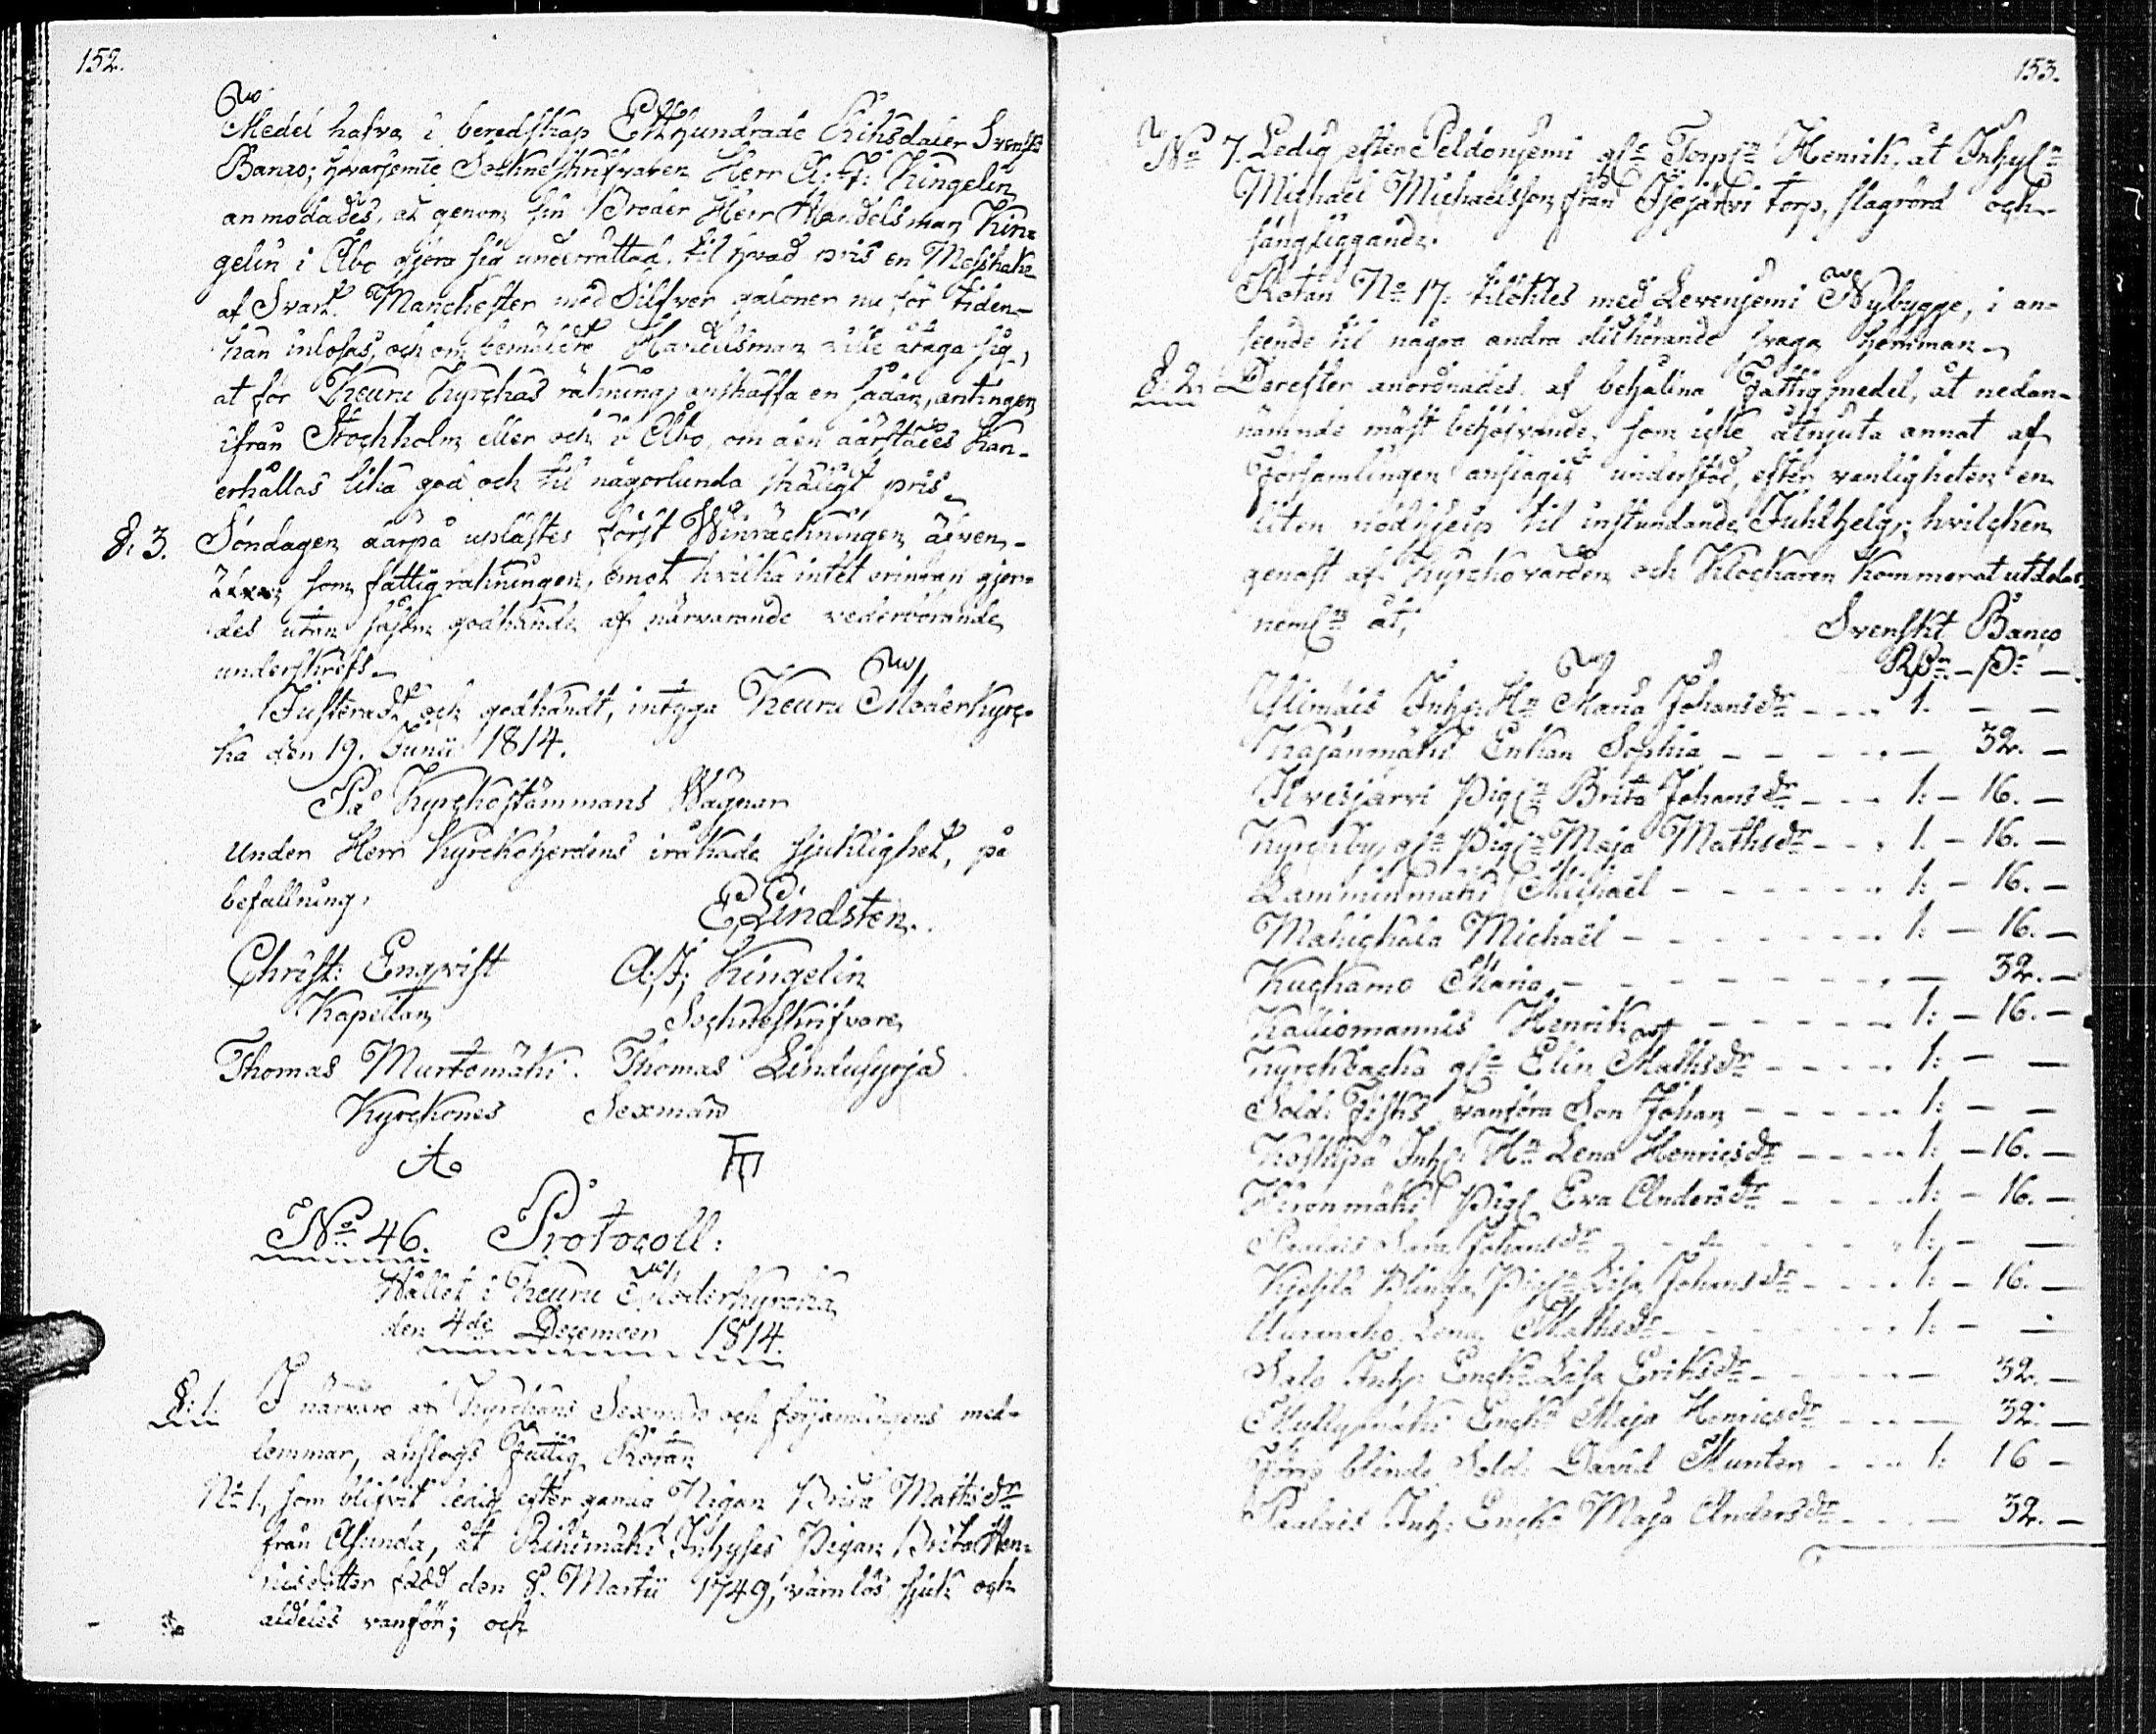 152.
Medel hafva i beredskap Etthundrade Riksdaler Svenskt
Banco; hvarjemte Sockneskrifvaren Herr A: J: Kingelin
anmodades, at genom sin Broder Herr Handelsman Kin-
gelin i Åbo göra sig underrättad, til hvad pris en Messhake
af Svart Manchester med Silfver galoner nu för tiden
kan inlösas, och om bemälte Handelsman ville åtaga sig,
at för Keuru Kyrckas räkning anskaffa en sådan, antingen
ifrån Stockholm eller ock i Åbo, om den därstädes kan
erhållas lika god och til någorlunda skäligt pris.
§. 3. Söndagen därpå uplästes först Winräckningen äfven-
som fattigräkningen, emot hvilka intet erinran gjor-
des utan såsom godkände af närvarande vederbörande
underskrefs.
Justeradt och godkändt, intyga Keuru Moderkyrc-
ka den 19. Junii 1814.
På Kyrckostämmans Wägnar
under Herr Kyrckoherdens iråkade sjuklighet, på
befallning,
E Lindsten.
Christ: Enqvist A: J: Kingelin
Kapellan Sockneskrifvare
Thomas Murtomäki. Thomas Lindusyrjä.
Kyrckones Sexmän
No 46. Protocoll:
Hållet i Keuru Moderkyrcka
den 4de December 1814.
§. 1. I närvaro af Kyrckans Sexmän och församlingens med-
lemmar, anslogs Fattig Rotan
No 1, som blifvit ledig efter gamla Pigan Brita Mathsdr
från Asunda, åt Riihimäki Inhyses Pigan Brita Hen-
ricsdotter född den 8. Martii 1749, värnlös, sjuk och
aldeles vanför; och
153.
No 7. Ledig efter Peldoniemi gle Torpn Henrik, åt Inhysn
Michael Michaelsson från Jyöjärvi torp, slagrörd och
sängliggande.
Rotan No 17: tilöktes med Levenjemi Nybygge, i an-
seende til några andra dithörande svaga hemman.
§. 2. Derefter anordnades af behålna Fattigmedel, åt nedan-
nämnde mäst behöfvande, som icke åtnjuta annat af
Församlingen anslagit understöd, efter vanligheten en
liten nödhjelp til instundande Juhlhelg; hvilcken
genast af Kyrckovärden och Klockaren kommer at utdelas
neml. åt,
Svenskt Banco
Rdr – s –
Inh. Hu Maria Johansdr – – – 1. – –
Kajanmäki Enkan Sophia – – – – 32. –
Ilvesjärvi Pign Brita Johansdr – – – 1: – 16. –
Kyrckby gla Pign Maja Mathsdr – – – 1. – 16. –
Lamminmäki Michael – – – – 1: – 16. –
Michael – – – – 1: – 16. –
Kuckamo Maria – – – – – 32. –
Kalliomannis Henrik – – – – 1: – 16. –
Kyrckbacka gla Elin Mathsdr – – – – 1: – –
Sold: Fisks vanföra Son Johan – – – – 1: – –
Inh: Hu Lena Henricsdr – – – – 1: – 16. –
Pig Eva Andersdr – – – – 1: – 16. –
Sara Johansdr – – – – 1: – –
Blinda Pign Lisa Johansdr – – – – 1: – 16. –
Lena Mathsdr – – – – 1: – –
Salo Inh: Enck Lisa Eriksdr – – – – 32. –
Enck Maja Henricsdr – – – 32. –
blinde Sold: David Munter – – – 1: 16 –
Inh: Encka Maja Andersdr – – – – 32. –